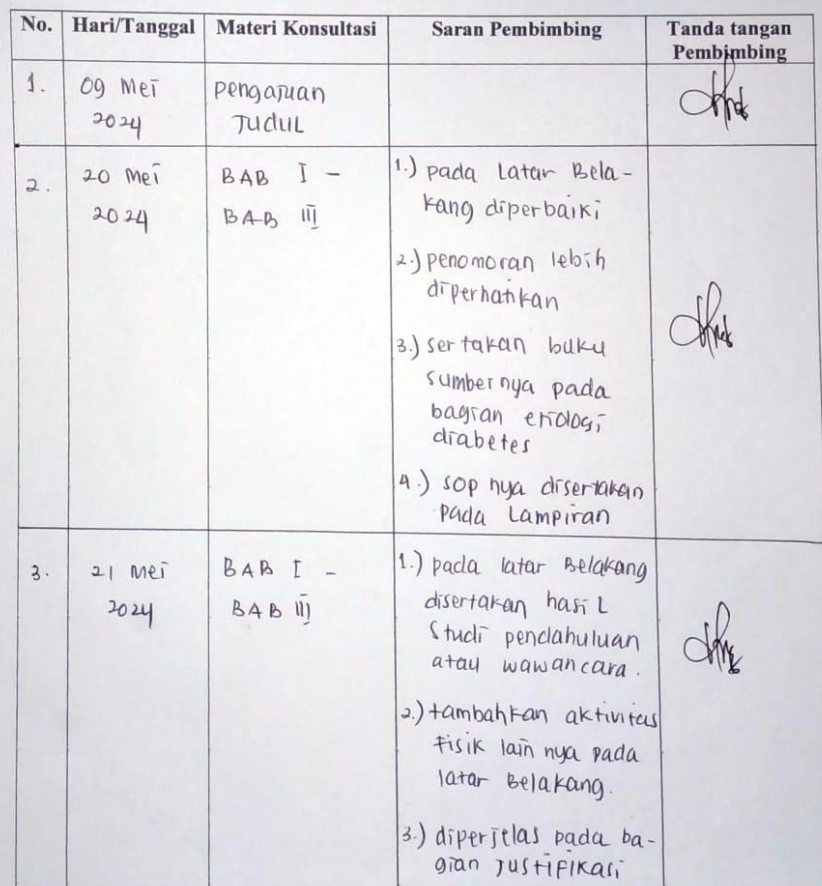 No. Hari/Tanggal Materi Konsultasi Saran Pembimbing Tanda tangan Pembimbing
1. 09 Mei 2024
Pengajuan
Judul
2. 20 Mei 2024
BAB I -
BAB III
1.) pada Latar Bela-
kang diperbaiki
2.) penomoran lebih
diperhatikan
3.) sertakan buku
sumbernya pada
bagian etiologi
diabetes
4.) SOP nya disertakan
pada Lampiran
3. 21 Mei 2024
BAB I -
BAB III
1.) pada latar Belakang
disertakan hasil
Studi pendahuluan
atau wawancara.
2.) tambahkan aktivitas
Fisik lain nya pada
latar Belakang.
3.) diperjelas pada ba-
gian Justifikasi